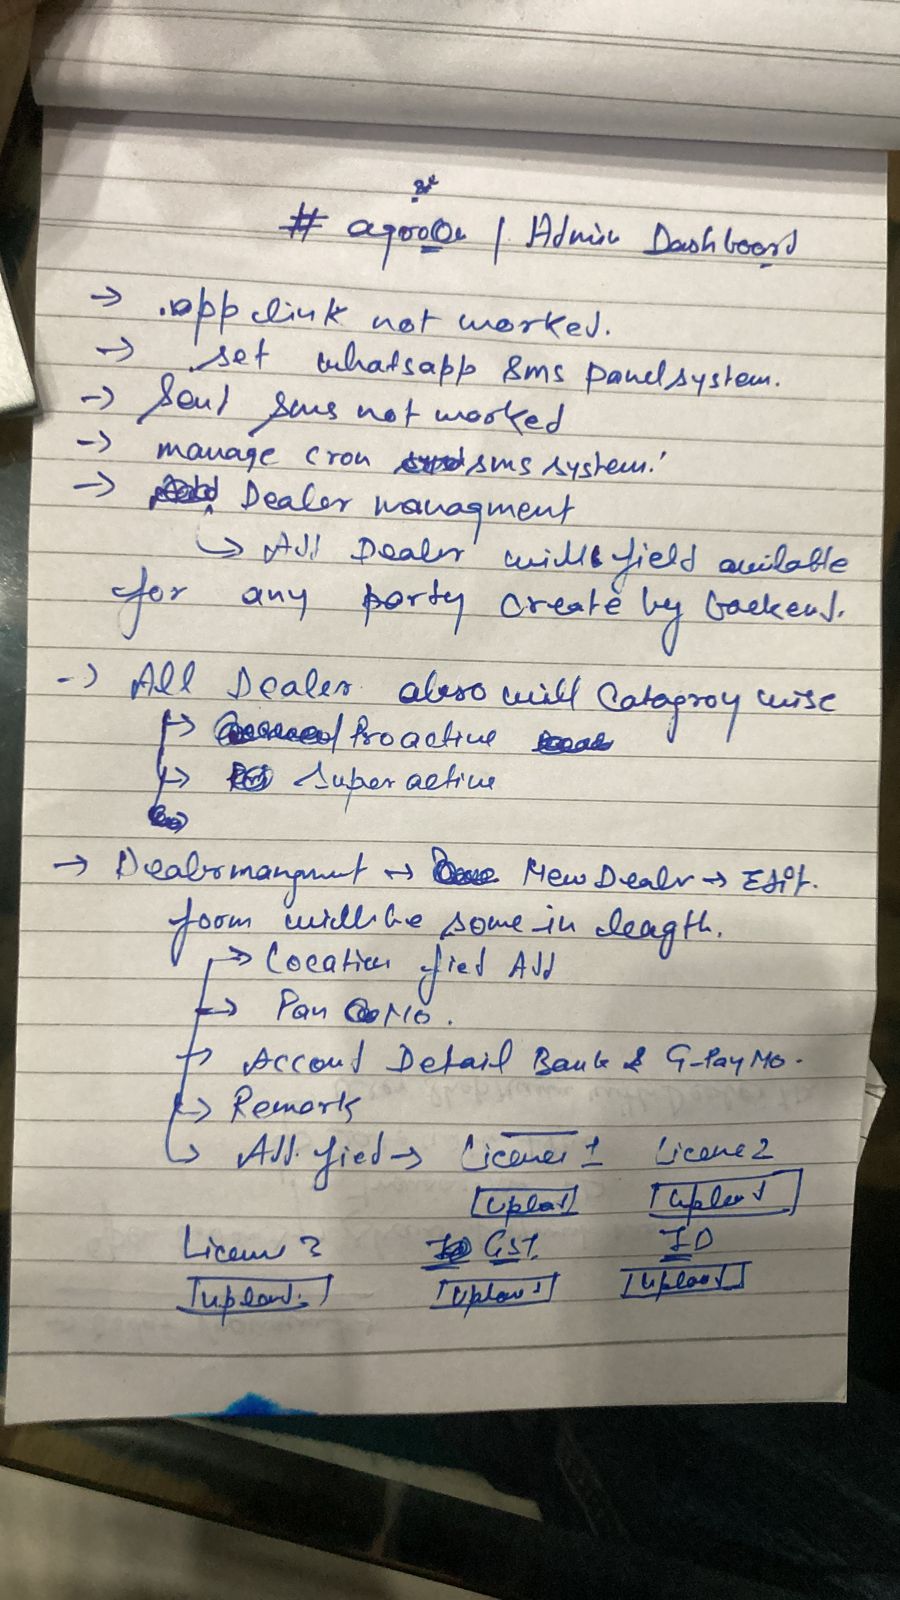 # / Admin Dashboard
→ .app link not worked.
→ set whatsapp sms panel system.
→ Send sms not worked
→ manage cron sms system.
→ Dealer managment
↳ All Dealer will field available
for any party create by backend.
→ All Dealer also will Catagroy wise
→ Proactive
→ Super active
→ Dealermangmnt → New Dealr → Edit.
form will be same in length.
→ Location fied Add
→ Pan No.
→ Accound Detail Bank & G-Pay No.
→ Remark
→ Add. fied → Licene 1 Licene 2
Upload Upload
Licene 3 GST. ID
Upload. Upload Upload